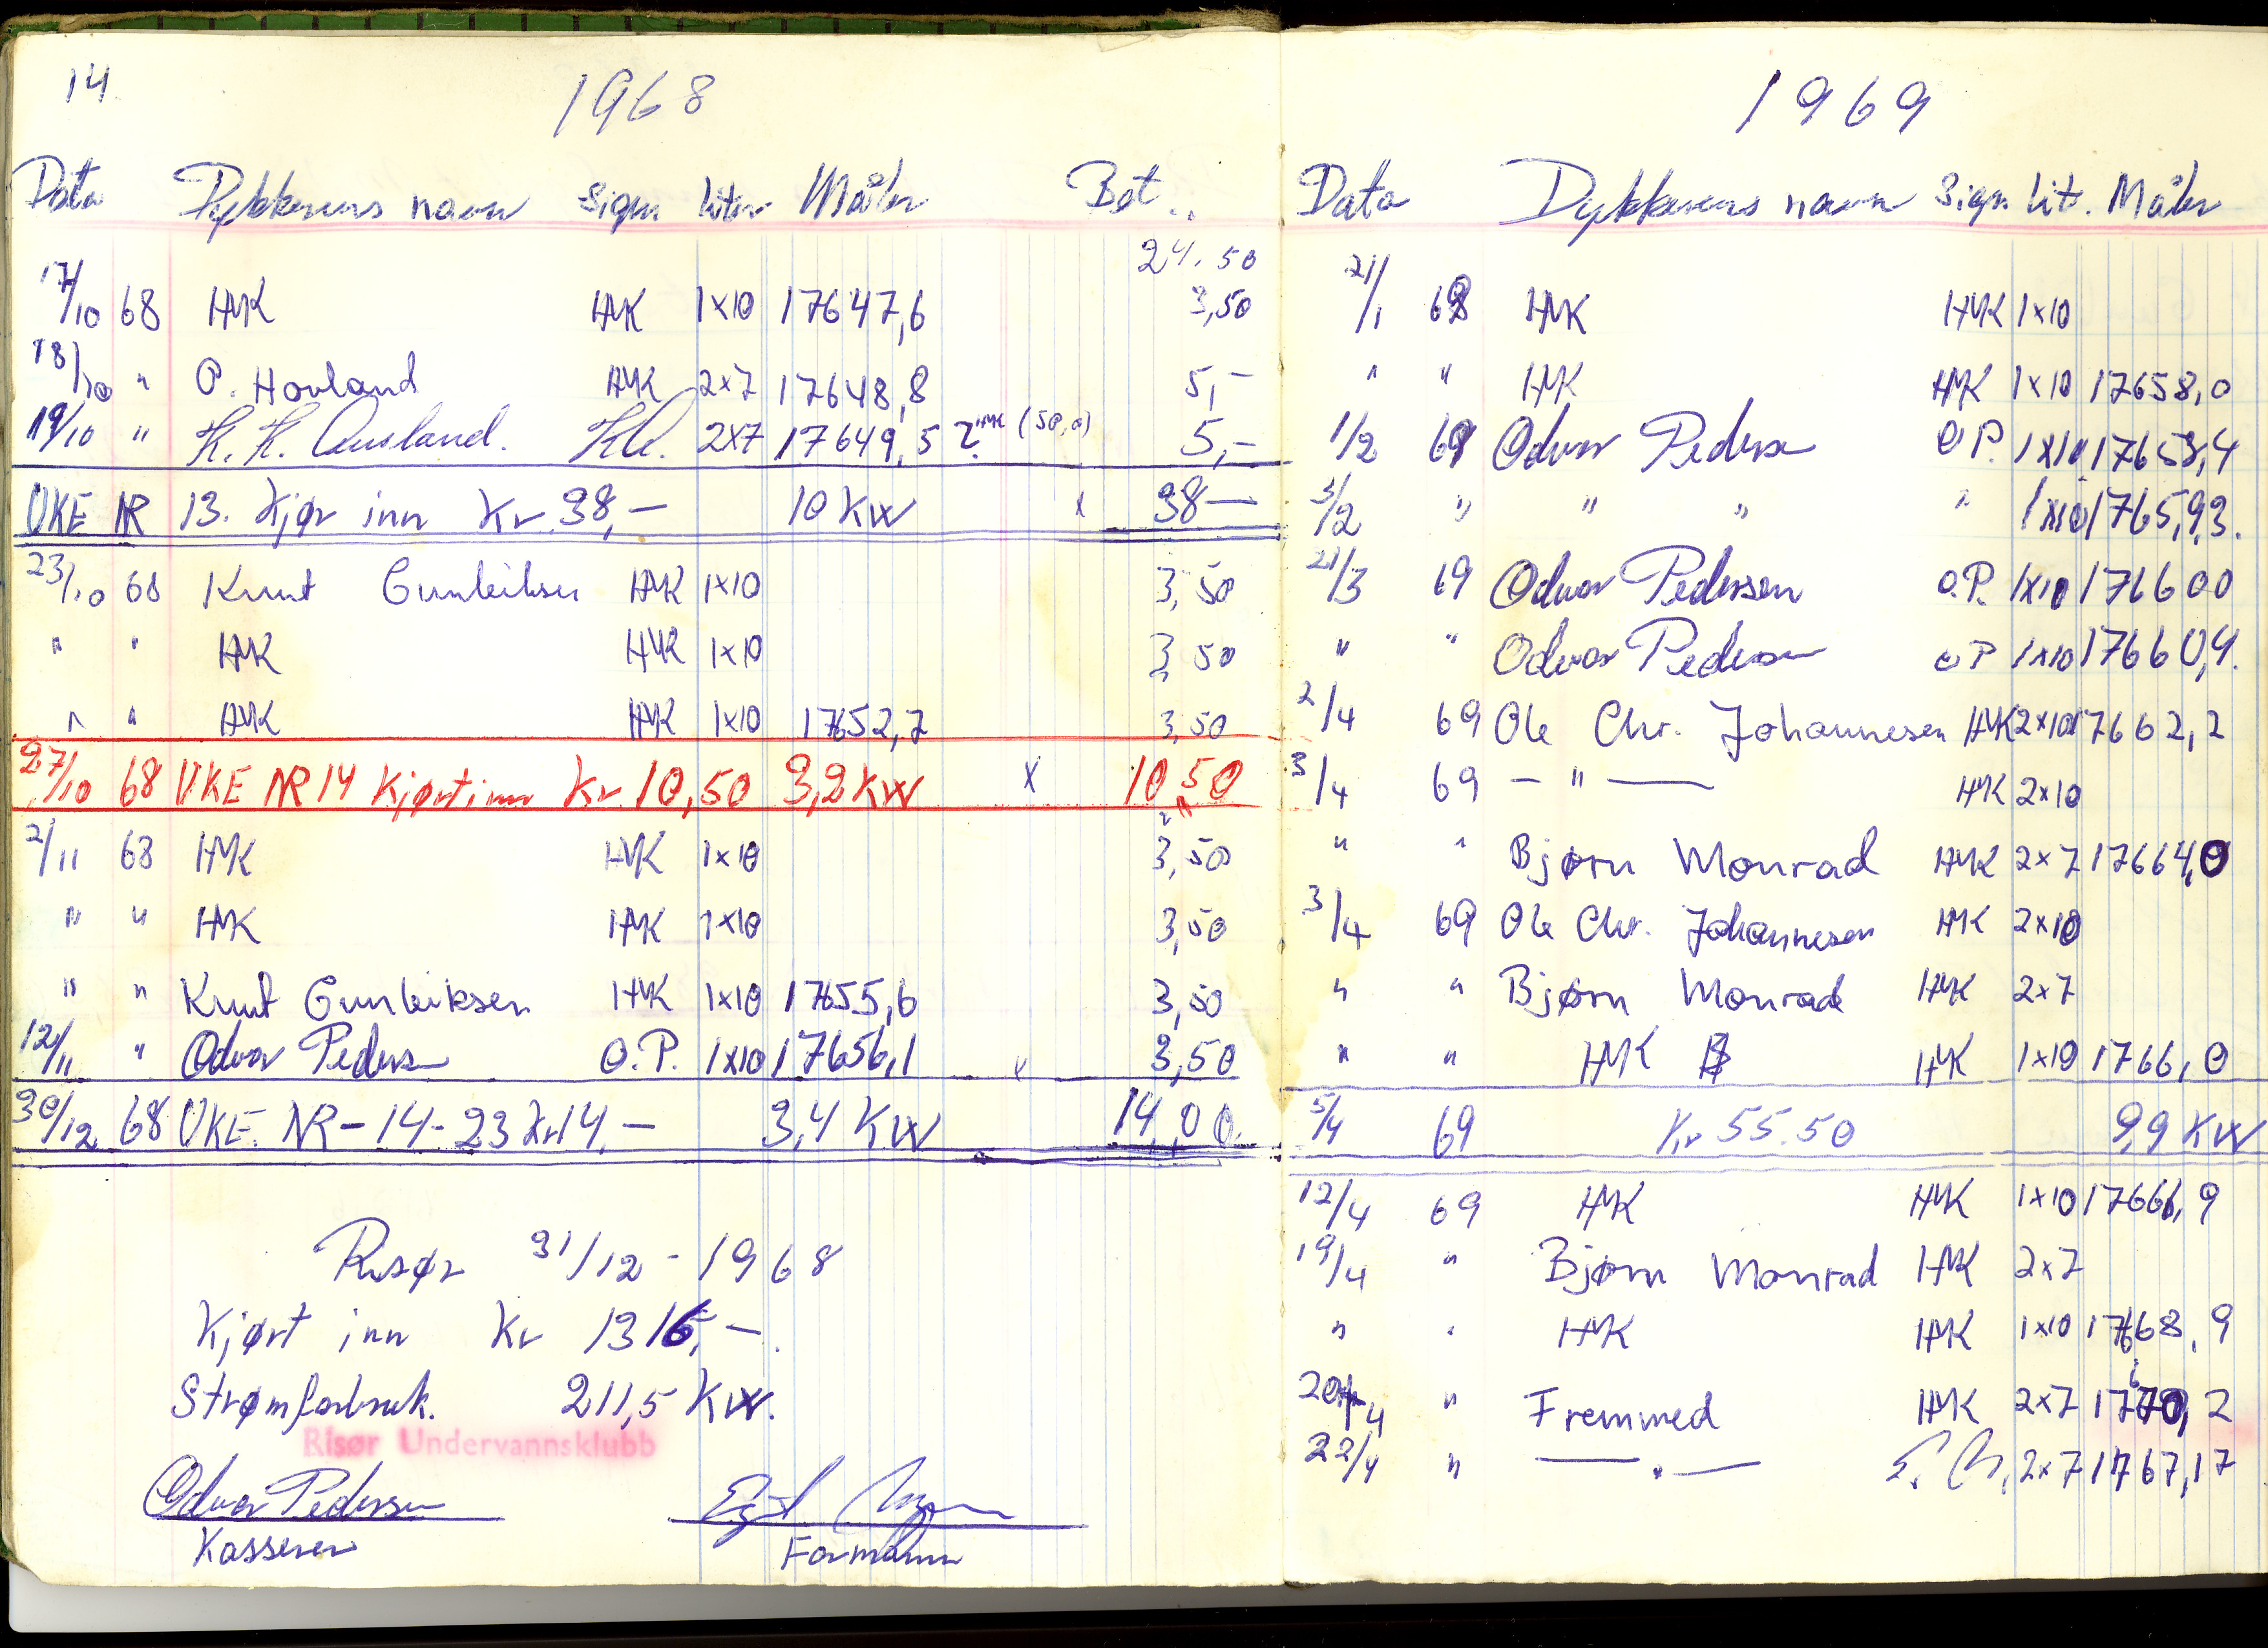 14.
1968
Data Dykkerens navn Sign liter Måler Bet..
24.50
17/10 68 HMK HMK 1x10 17647,6 3,50
18/10 " O. Hovland HMK 2x7 17648,8 5,-
19/10 " K. K. Ausland. KA. 2x7 17649,5 ? HMK (50,0) 5,-
UKE NR 13. Kjør inn Kr. 38,- 10 KW x 38—
23/10 68 Knut Gunleiksen HMK 1x10 3,50
" " HMK HMK 1x10 3,50
" " HMK HMK 1x10 17652,7 3,50
27/10 68 UKE NR 14 Kjørt inn Kr 10,50 3,2 KW x 10,50
2/11 68 HMK HMK 1x10 3,50
" " HMK HMK 1x10 3,50
" " Knut Gunleiksen HMK 1x10 17655,6 3,50
12/11 " Odvar Peders O.P. 1x10 17656,1 x 3,50
30/12 68 UKE. NR-14-23 Kr 14,- 3,4 KW 14,00.
Risør 31/12 - 1968
Kjørt inn Kr 1316,-.
Strømforbruk. 211,5 KW.
Risør Undervannsklubb
Odvar Pedersen
Kasserer Formann
1969
Data Dykkerens navn Sign. lit. Måler
21/1 69 HMK HMK 1x10
" " HMK HMK 1x10 17658,0
1/2 69 Odvar Peders O.P. 1x10 17658,4
3/2 " " " " 1x10 1765,93.
21/3 69 Odvar Pedersen O.P. 1x10 176600
" " Odvar Pedersen O P 1x10 17660,4.
2/4 69 Ole Chr. Johannesen HMK 2x10 17662,2
3/4 69 — " — HMK 2x10
" " Bjørn Monrad HMK 2x7 17664,0
3/4 69 Ole Chr. Johannesen HMK 2x10
" " Bjørn Monrad HMK 2x7
" " HMK HMK 1x10 1766,0
5/4 69 Kr 55.50 9,9 KW
12/4 69 HMK HMK 1x10 17666,9
19/4 " Bjørn Monrad HMK 2x7
" " HMK HMK 1x10 17668,9
20/4 " Fremmed HMK 2x7 17670,2
22/4 " — " — 2x7 1767,17